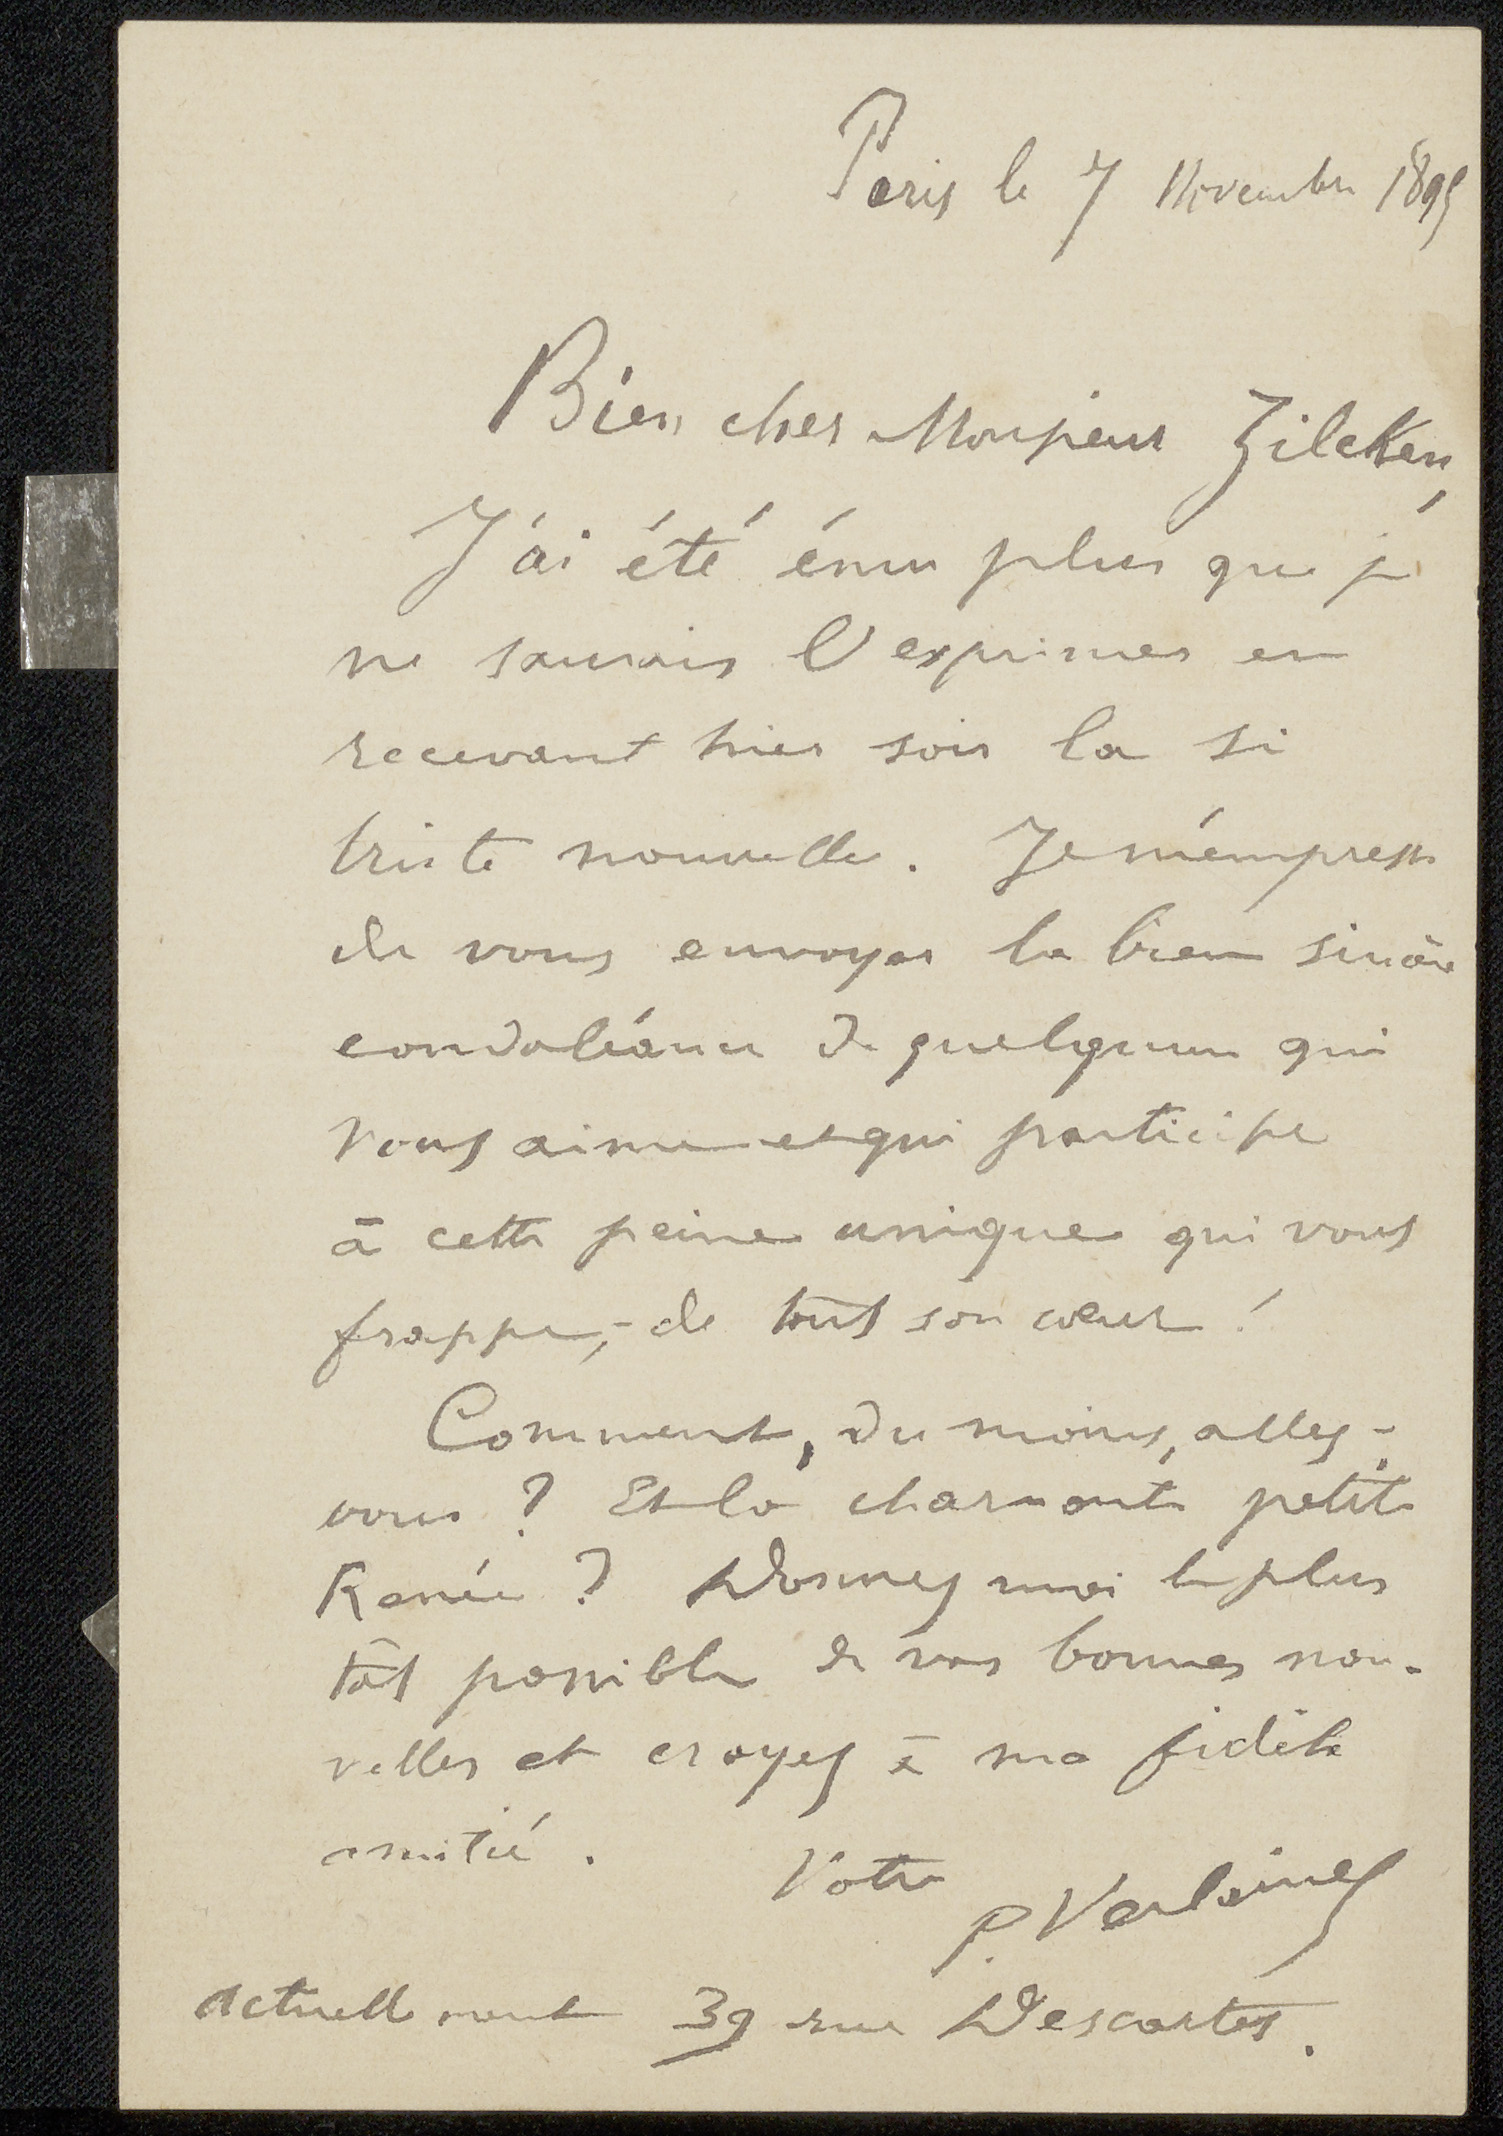 Paris le 7 Novembre 1895
Bien cher Monsieur Zilcken,
J'ai été ému plus que je
ne saurais l'exprimer en
recevant hier soir la si
triste nouvelle. Je m'empresse
de vous envoyer la bien sincère
condoléance de quelqu'un qui
vous aime et qui participe
à cette peine unique qui vous
frappe, - de tout son cœur !
Comment, du moins, allez-
vous ? Et la charmante petite
Renée ? Donnez moi le plus
tôt possible de vos bonnes nou-
velles et croyez à ma fidèle
amitié. Votre
P. Verlaine
Actuellement 39 rue Descartes.